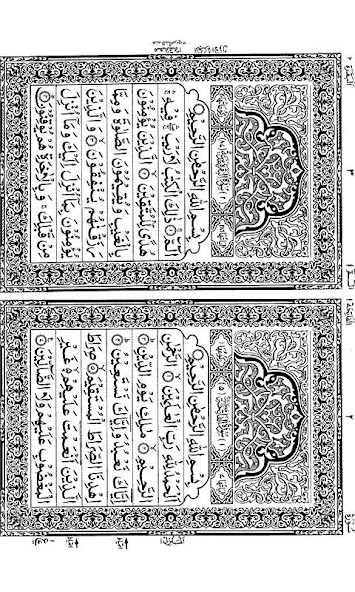 بِسْمِ اللّٰهِ الرَّحْمٰنِ الرَّحِيْمِ
اَلْحَمْدُ لِلّٰهِ رَبِّ الْعٰلَمِيْنَ الرَّحْمٰنِ
الرَّحِيْمِ مٰلِكِ يَوْمِ الدِّيْنِ
اِيَّاكَ نَعْبُدُ وَاِيَّاكَ نَسْتَعِيْنُ
اِهْدِنَا الصِّرَاطَ الْمُسْتَقِيْمَ صِرَاطَ
الَّذِيْنَ اَنْعَمْتَ عَلَيْهِمْ غَيْرِ
الْمَغْضُوْبِ عَلَيْهِمْ وَلَا الضَّآلِّيْنَ
بِسْمِ اللّٰهِ الرَّحْمٰنِ الرَّحِيْمِ
الٓمّٓ ذٰلِكَ الْكِتٰبُ لَا رَيْبَ فِيْهِ
هُدًى لِّلْمُتَّقِيْنَ الَّذِيْنَ يُؤْمِنُوْنَ
بِالْغَيْبِ وَيُقِيْمُوْنَ الصَّلٰوةَ وَمِمَّا
رَزَقْنٰهُمْ يُنْفِقُوْنَ وَالَّذِيْنَ
يُؤْمِنُوْنَ بِمَآ اُنْزِلَ اِلَيْكَ وَمَآ اُنْزِلَ
مِنْ قَبْلِكَ وَبِالْاٰخِرَةِ هُمْ يُوْقِنُوْنَ